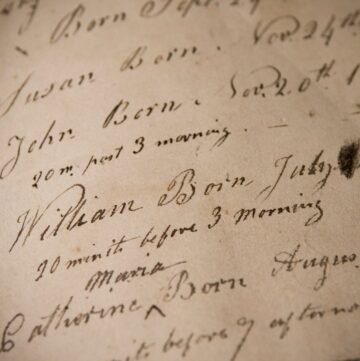 Born Sept. 29
Susan Born. Nov. 24th
John Born. Nov. 20th 1
20 m. past 3 morning.
William Born July
20 minits before 3 morning
Maria
Catherine ^ Born Augus
before 7 afterno